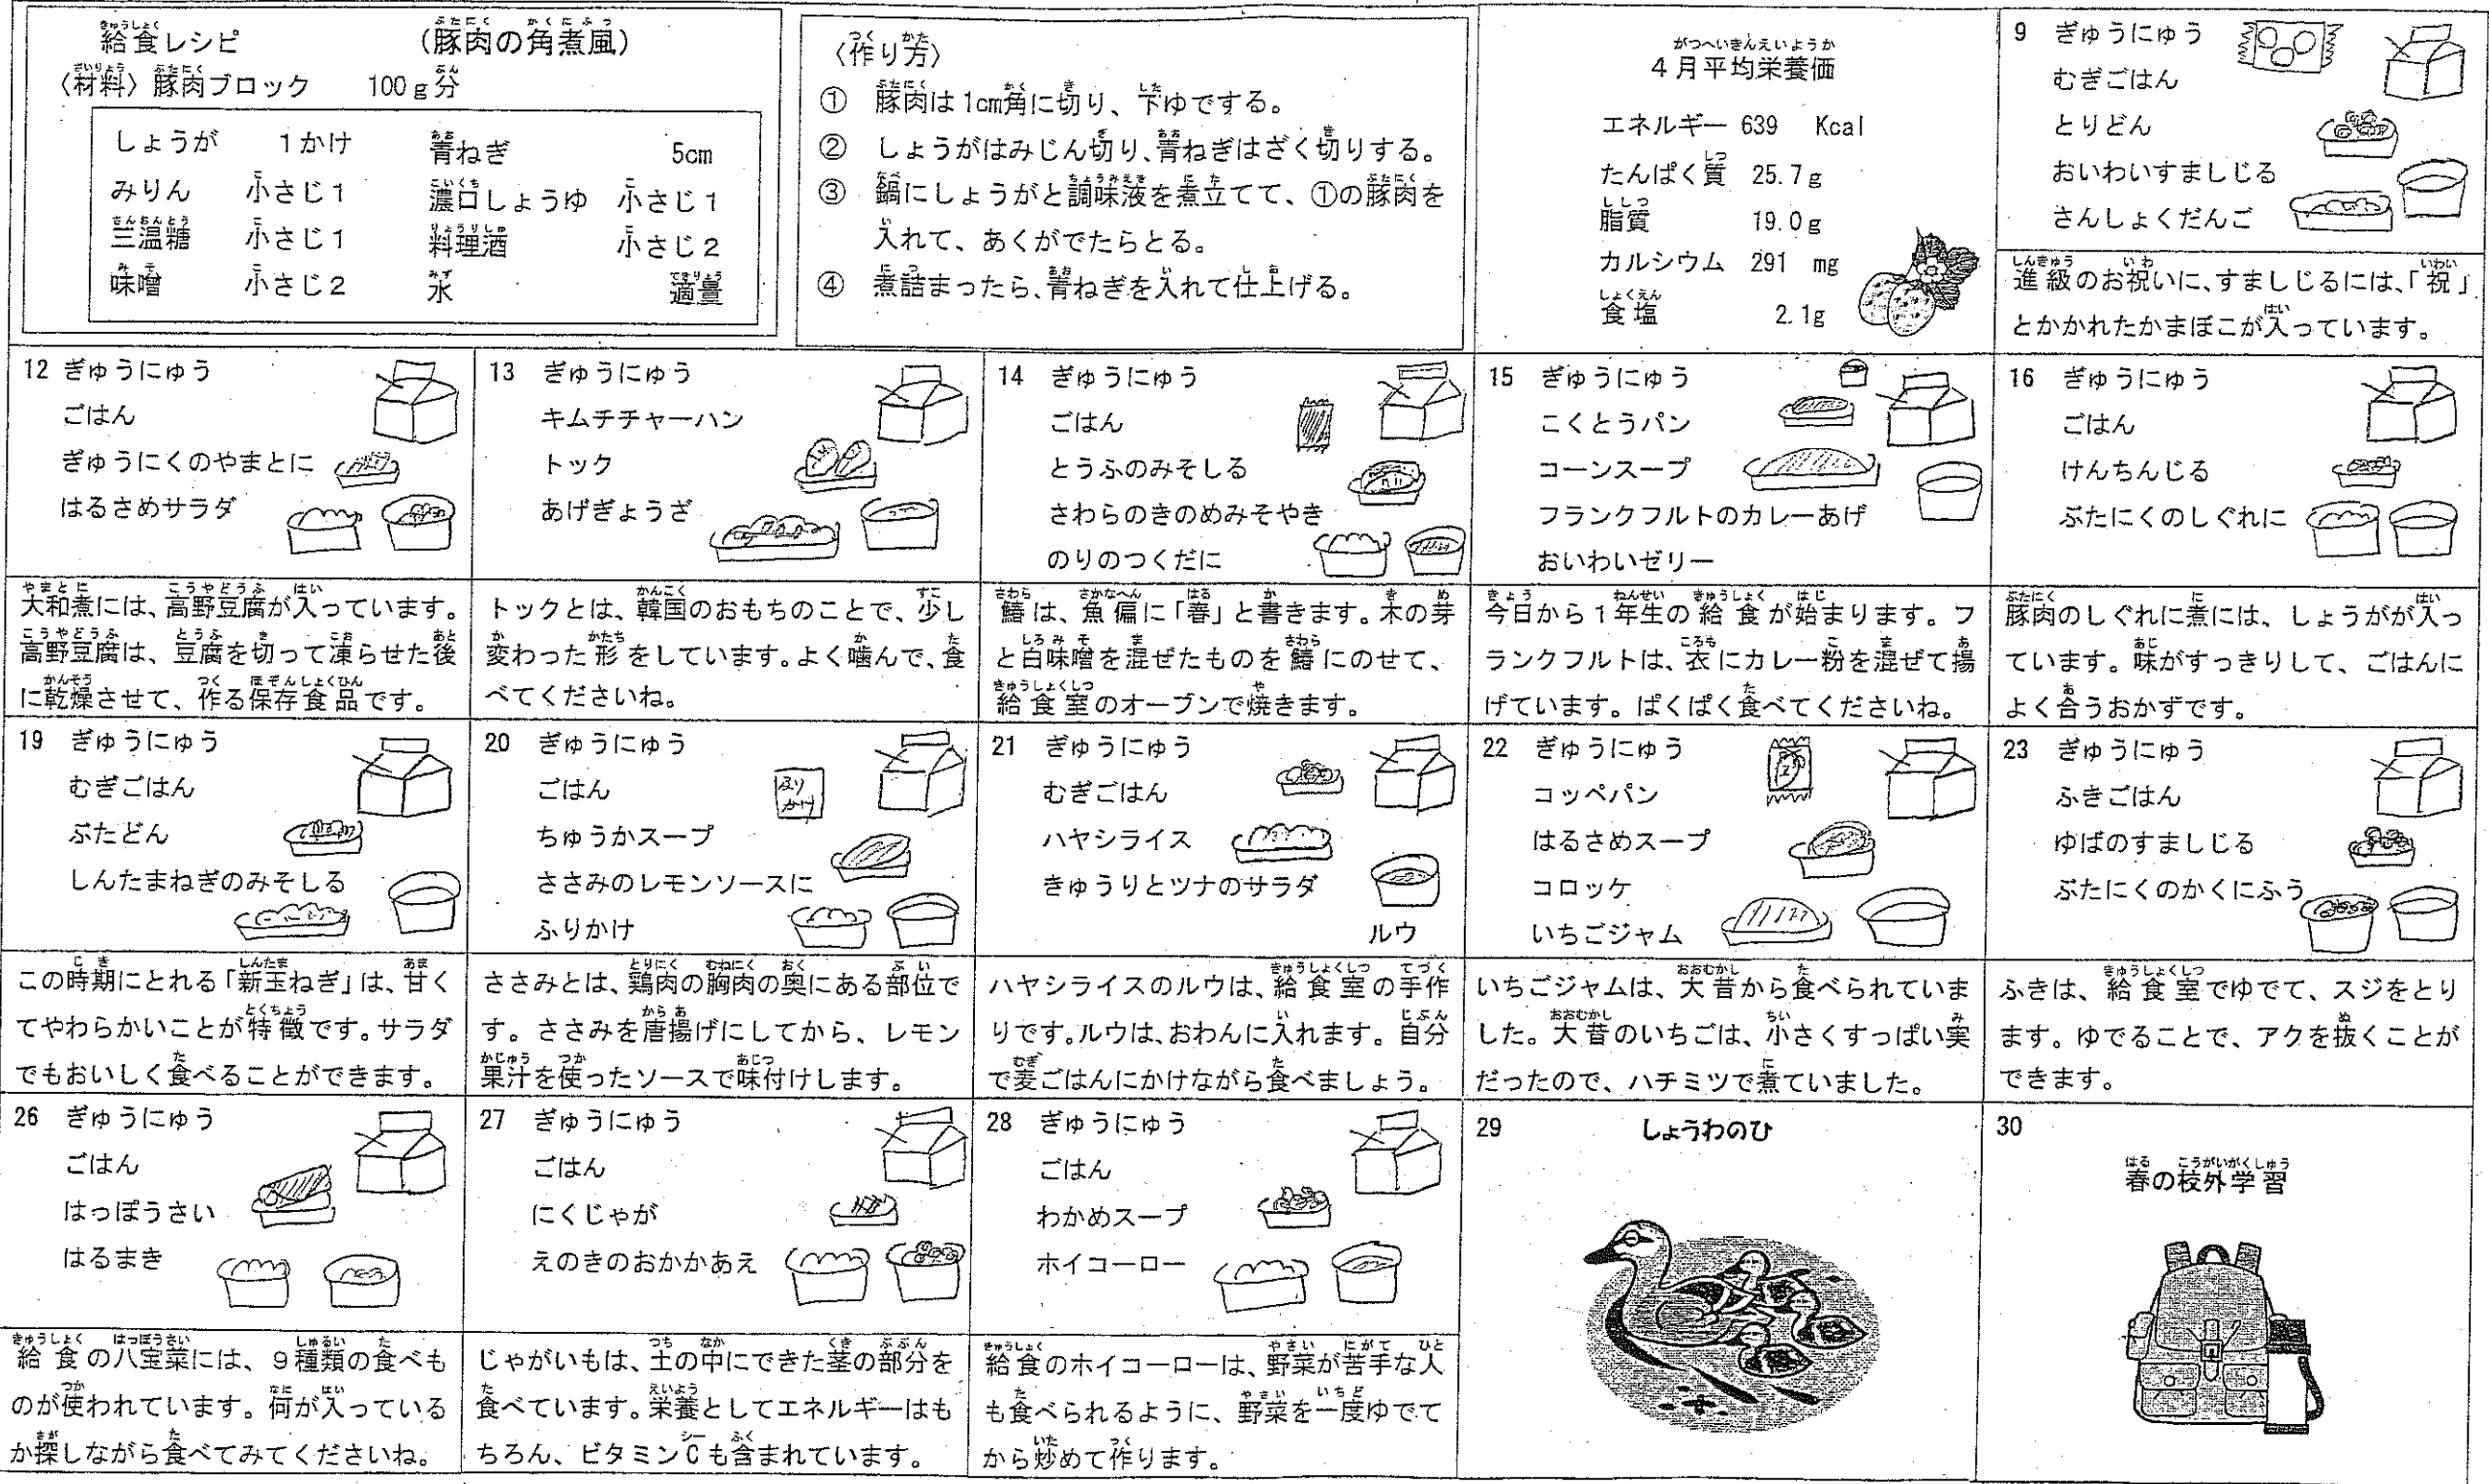 給食レシピ　(豚肉の角煮風)
〈材料〉豚肉ブロック　100g分
しょうが　1かけ　青ねぎ　5cm
みりん　小さじ1　濃口しょうゆ　小さじ1
三温糖　小さじ1　料理酒　小さじ2
味噌　小さじ2　水　適量
〈作り方〉
①　豚肉は1cm角に切り、下ゆでする。
②　しょうがはみじん切り、青ねぎはざく切りする。
③　鍋にしょうがと調味液を煮立てて、①の豚肉を
入れて、あくがでたらとる。
④　煮詰まったら、青ねぎを入れて仕上げる。
4月平均栄養価
エネルギー 639 Kcal
たんぱく質 25.7g
脂質 19.0g
カルシウム 291 mg
食塩 2.1g
9 ぎゅうにゅう
むぎごはん
とりどん
おいわいすましじる
さんしょくだんご
進級のお祝いに、すましじるには、「祝」
とかかれたかまぼこが入っています。
12 ぎゅうにゅう
ごはん
ぎゅうにくのやまとに
はるさめサラダ
大和煮には、高野豆腐が入っています。
高野豆腐は、豆腐を切って凍らせた後
に乾燥させて、作る保存食品です。
13 ぎゅうにゅう
キムチチャーハン
トック
あげぎょうざ
トックとは、韓国のおもちのことで、少し
変わった形をしています。よく噛んで、食
べてくださいね。
14 ぎゅうにゅう
ごはん
とうふのみそしる
さわらのきのめみそやき
のりのつくだに
鰆は、魚偏に「春」と書きます。木の芽
と白味噌を混ぜたものを鰆にのせて、
給食室のオーブンで焼きます。
15 ぎゅうにゅう
こくとうパン
コーンスープ
フランクフルトのカレーあげ
おいわいゼリー
今日から1年生の給食が始まります。フ
ランクフルトは、衣にカレー粉を混ぜて揚
げています。ぱくぱく食べてくださいね。
16 ぎゅうにゅう
ごはん
けんちんじる
ぶたにくのしぐれに
豚肉のしぐれに煮には、しょうがが入っ
ています。味がすっきりして、ごはんに
よく合うおかずです。
19 ぎゅうにゅう
むぎごはん
ぶたどん
しんたまねぎのみそしる
この時期にとれる「新玉ねぎ」は、甘く
てやわらかいことが特徴です。サラダ
でもおいしく食べることができます。
20 ぎゅうにゅう
ごはん
ふりかけ
ちゅうかスープ
ささみのレモンソースに
ふりかけ
ささみとは、鶏肉の胸肉の奥にある部位で
す。ささみを唐揚げにしてから、レモン
果汁を使ったソースで味付けします。
21 ぎゅうにゅう
むぎごはん
ハヤシライス
きゅうりとツナのサラダ
ルウ
ハヤシライスのルウは、給食室の手作
りです。ルウは、おわんに入れます。自分
で麦ごはんにかけながら食べましょう。
22 ぎゅうにゅう
コッペパン
はるさめスープ
コロッケ
いちごジャム
いちごジャムは、大昔から食べられていま
した。大昔のいちごは、小さくすっぱい実
だったので、ハチミツで煮ていました。
23 ぎゅうにゅう
ふきごはん
ゆばのすましじる
ぶたにくのかくにふう
ふきは、給食室でゆでて、スジをとり
ます。ゆでることで、アクを抜くことが
できます。
26 ぎゅうにゅう
ごはん
はっぽうさい
はるまき
給食の八宝菜には、9種類の食べも
のが使われています。何が入っている
か探しながら食べてみてくださいね。
27 ぎゅうにゅう
ごはん
にくじゃが
えのきのおかかあえ
じゃがいもは、土の中にできた茎の部分を
食べています。栄養としてエネルギーはも
ちろん、ビタミンCも含まれています。
28 ぎゅうにゅう
ごはん
わかめスープ
ホイコーロー
給食のホイコーローは、野菜が苦手な人
も食べられるように、野菜を一度ゆでて
から炒めて作ります。
29 しょうわのひ
30
春の校外学習